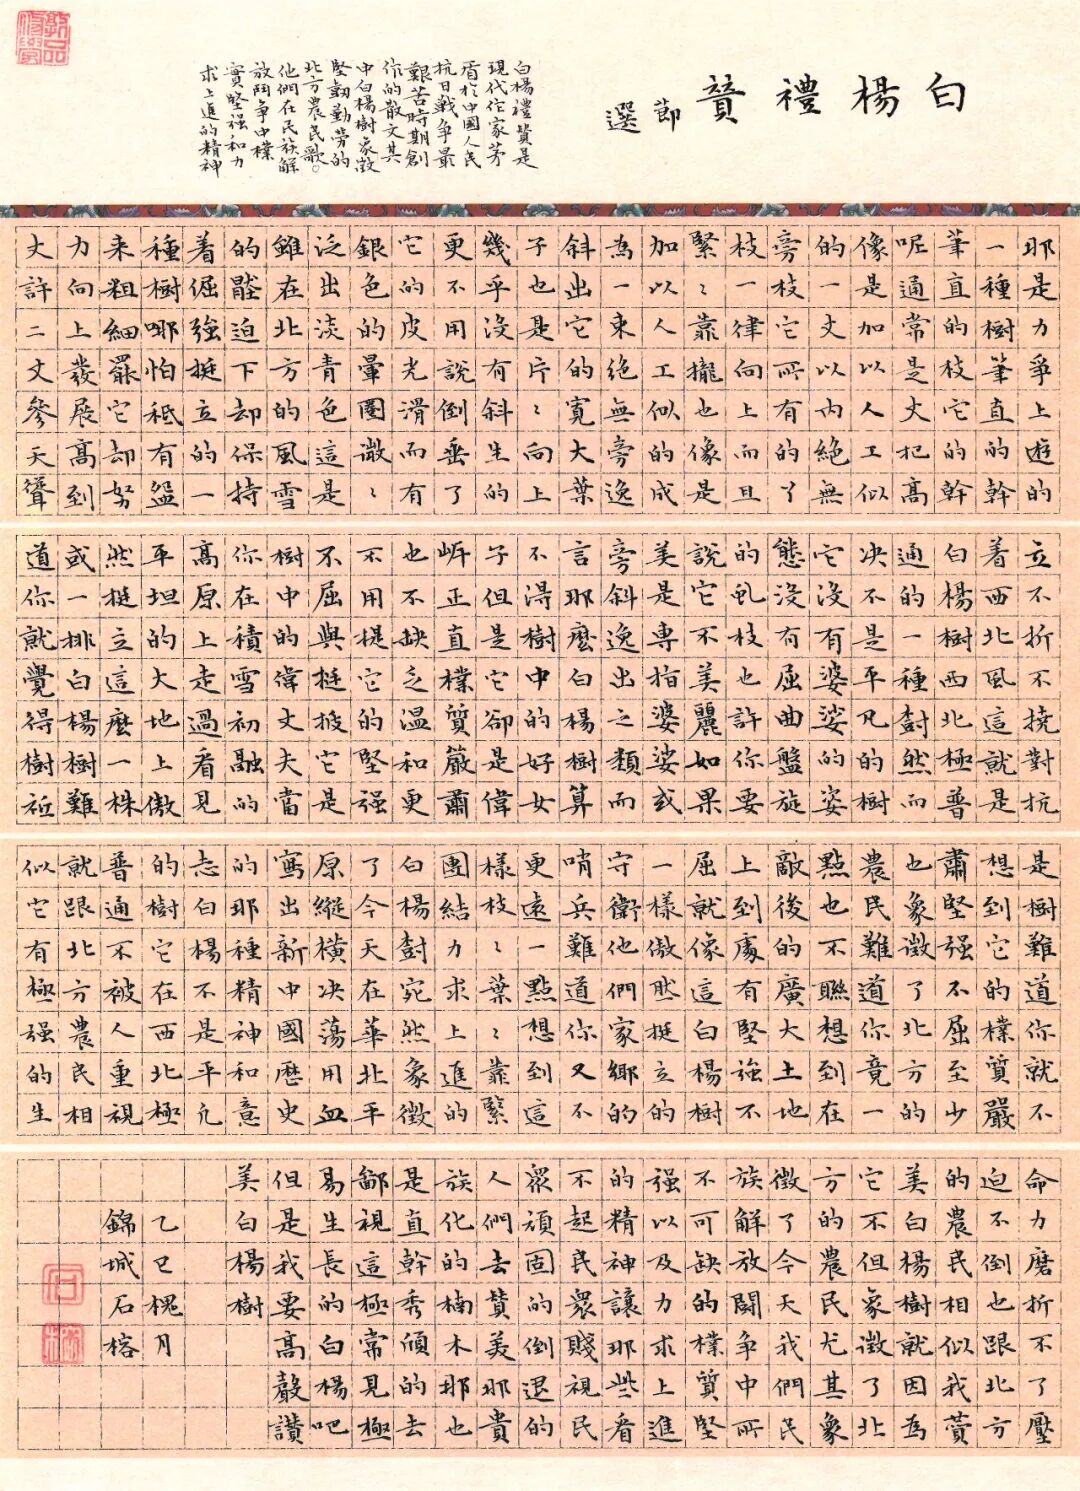 白楊禮贊
節選
白楊禮贊是
現代作家茅
盾於中國人民
抗日戰爭最
艱苦時期創
作的散文其
中白楊樹象徵
堅韌勤勞的
北方農民歌。
他們在民族解
放鬥爭中樸
實堅强和力
求上進的精神
耶是力爭上遊的
一種樹筆直的幹
筆直的枝它的幹
呢通常是丈把高
像是加以人工似
的一丈以内絶無
旁枝它所有的丫
枝一律向上而且
緊〻靠攏也像是
加以人工似的成
為一束絶無旁逸
斜出它的寬大葉
子也是片〻向上
幾乎沒有斜生的
更不用說倒垂了
它的皮光滑而有
銀色的暈圈微〻
泛出淡青色這是
雖在北方的風雪
的艱迫下却保持
着倔强挺立的一
種樹哪怕秪有盌
来粗細罷它却努
力向上發展高到
丈許二丈參天聳
立不折不撓對抗
着西北風這就是
白楊樹西北極普
通的一種樹然而
决不是平凡的樹
它沒有婆娑的姿
態沒有屈曲盤旋
的虬枝也許你要
說它不美麗如果
美是專指婆娑或
旁斜逸出之類而
言耶麽白楊樹算
不得樹中的好女
子但是它卻是偉
岍正直樸質嚴肅
也不缺乏温和更
不用提它的堅强
不屈與挺拔它是
樹中的偉丈夫當
你在積雪初融的
高原上走過看見
平坦的大地上傲
然挺立這麽一株
或一排白楊樹難
道你就覺得樹衹
是樹難道你就不
想到它的樸質嚴
肅堅强不屈至少
也象徵了北方的
農民難道你竟一
點也不聯想到在
敵後的廣大土地
上到處有堅强不
屈就像這白楊樹
一樣傲然挺立的
守衛他們家鄉的
哨兵難道你又不
更遠一點想到這
樣枝〻葉〻靠緊
團結力求上進的
白楊樹宛然象徵
了今天在華北平
原縱横决蕩用血
寫出新中國歷史
的耶種精神和意
志白楊不是平凡
的樹它在西北極
普通不被人重視
就跟北方農民相
似它有極强的生
命力磨折不了壓
迫不倒也跟北方
的農民相似我贊
美白楊樹就因為
它不但象徵了北
方的農民尤其象
徵了今天我們民
族解放鬪爭中所
不可缺的樸質堅
强以及力求上進
的精神讓耶些看
不起民衆賤視民
衆頑固的倒退的
人們去贊美耶貴
族化的楠木耶也
是直幹秀頎的去
鄙視這極常見極
易生長的白楊吧
但是我要高聲讚
美白楊樹
乙巳槐月
錦城石榕